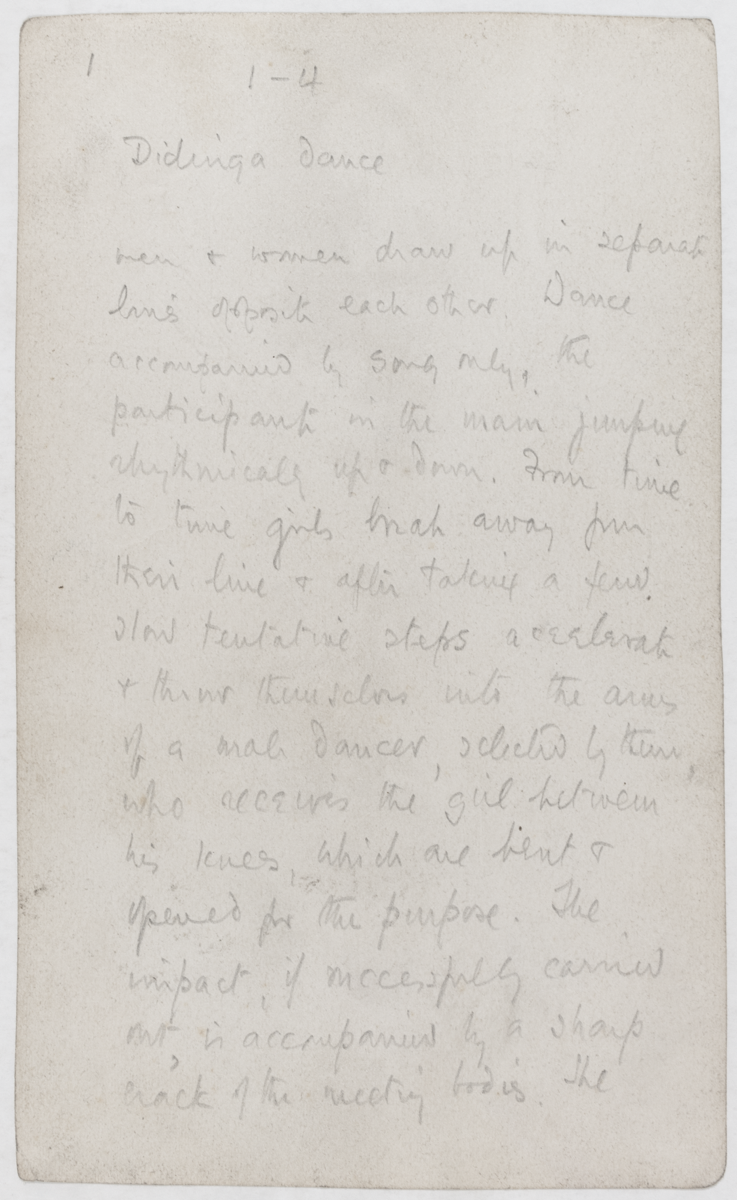 1
1-4
Didinga Dance
men & women draw up in separate
lines opposite each other. Dance
accompanied by song only, the
participants in the main jumping
rhythmically up & down. From time
to time girls break away from
their line & after taking a few
slow tentative steps accelerate
& throw themselves into the arms
of a male dancer, selected by them,
who receives the girl between
his knees, which are bent &
opened for the purpose. The
impact, if successfully carried
out, is accompanied by a sharp
crack of the meeting bodies. The